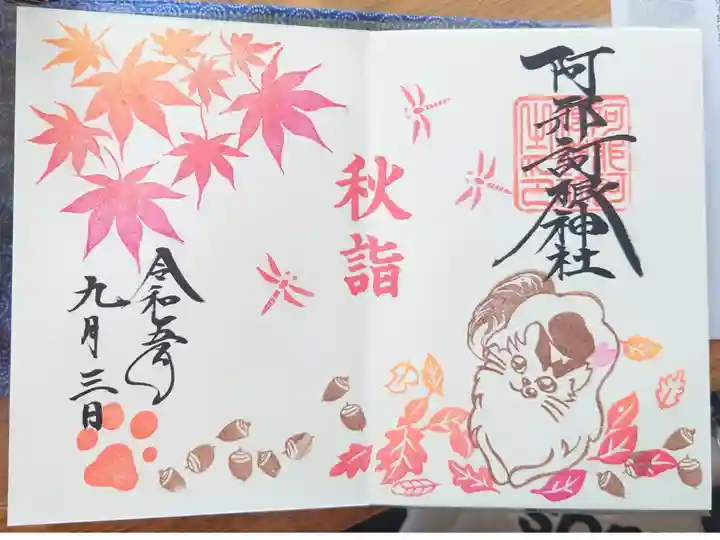 阿邪訶根神社
秋詣
令和五年
九月三日